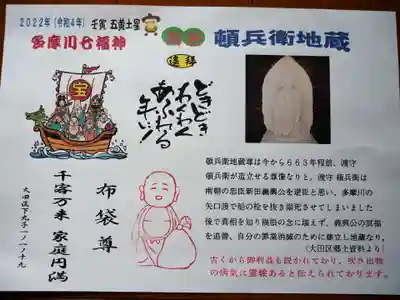 2022年(令和4年) 壬寅 五黄土星
多摩川七福神
遥拝
頓兵衛地蔵
宝
どきどき
わくわく
あふれる
千客万来 家庭円満
布袋尊
大田区下丸子1ノ1ノ19
頓兵衛地蔵尊は今から663年程前、渡守
頓兵衛が造立せる尊像なりと。渡守 頓兵衛は
南朝の忠臣新田義興公を逆臣と思い、多摩川の
矢口渡で船の栓を抜き溺死させてしまいました
後で真相を知り後悔の念に堪えず、義興公の冥福
を追善、自分の罪業消滅のために建立し地蔵なり。
(大田区郷土資料より)
古くから御利益も説かれており、吹き出物
の病気に霊験あると伝えられております。